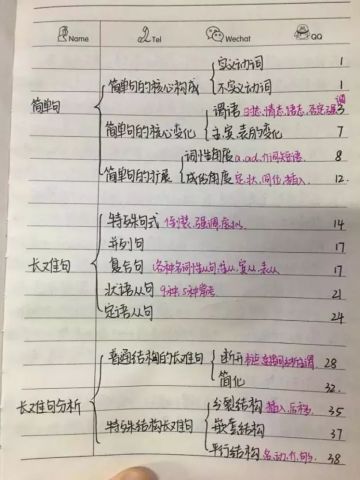 Name Tel Wechat QQ
实义动词 1
简单句的核心构成
不实义动词 1
谓语 时态、情态、语态、否定 强调 3
简单句
简单句的核心变化
主宾表的变化 7
词性角度 a.ad.介词短语. 8
简单句的扩展
成份角度 定.状.同位.插入. 12
特殊句式 倒装.强调.虚拟. 14
并列句 17
长难句
复合句 各种名词性从句.主从.宾从.表从 17
状语从句 9种.5种常考 21
定语从句 24
普通结构的长难句
断开 28
简化 32
长难句分析
分裂结构 插入. 35
特殊结构长难句
嵌套结构 37
平行结构 名.动.介.句. 38